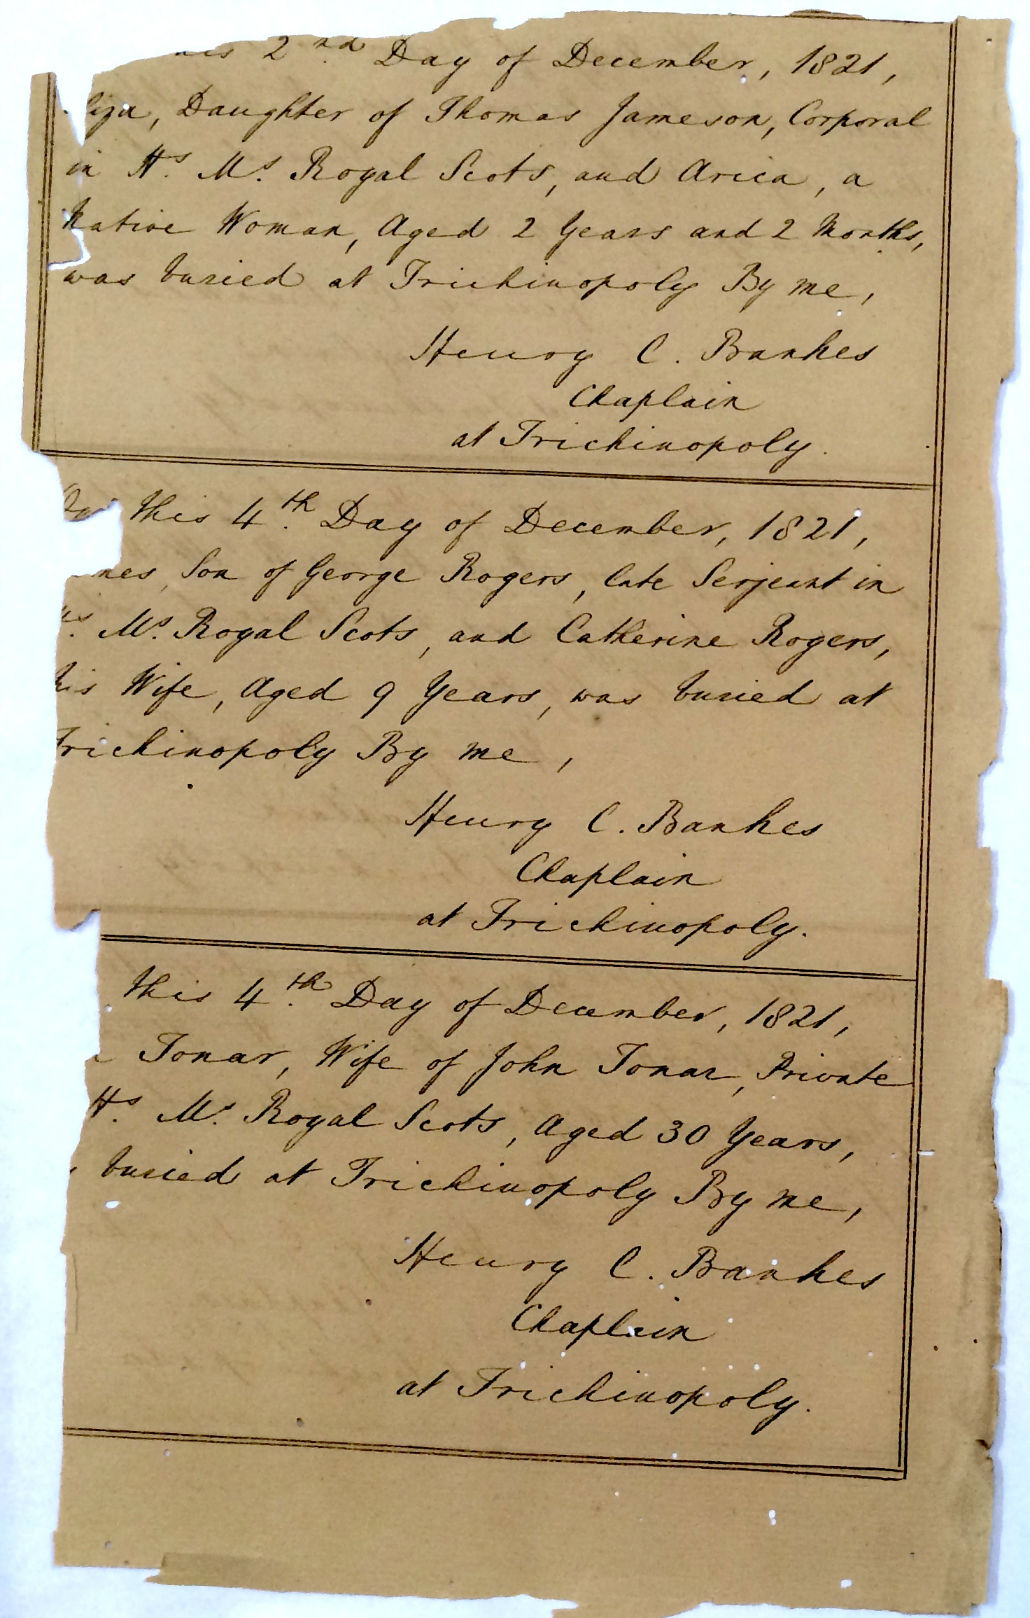 his 2nd Day of December, 1821,
liza, Daughter of Thomas Jameson, Corporal
in Hs. Ms. Royal Scots, and Arica, a
Native Woman, Aged 2 Years and 2 Months,
was buried at Trichinopoly By me,
Henry C. Bankes
Chaplain
at Trichinopoly.
On this 4th. Day of December, 1821,
mes, Son of George Rogers, late Serjeant in
Hs. Ms. Royal Scots, and Catherine Rogers,
his Wife, Aged 9 Years, was buried at
Trichinopoly By me,
Henry C. Bankes
Chaplain
at Trichinopoly.
this 4th. Day of December, 1821,
Tonar, Wife of John Tonar, Private
Hs. Ms. Royal Scots, Aged 30 Years,
buried at Trichinopoly By me,
Henry C. Bankes
Chaplain
at Trichinopoly.